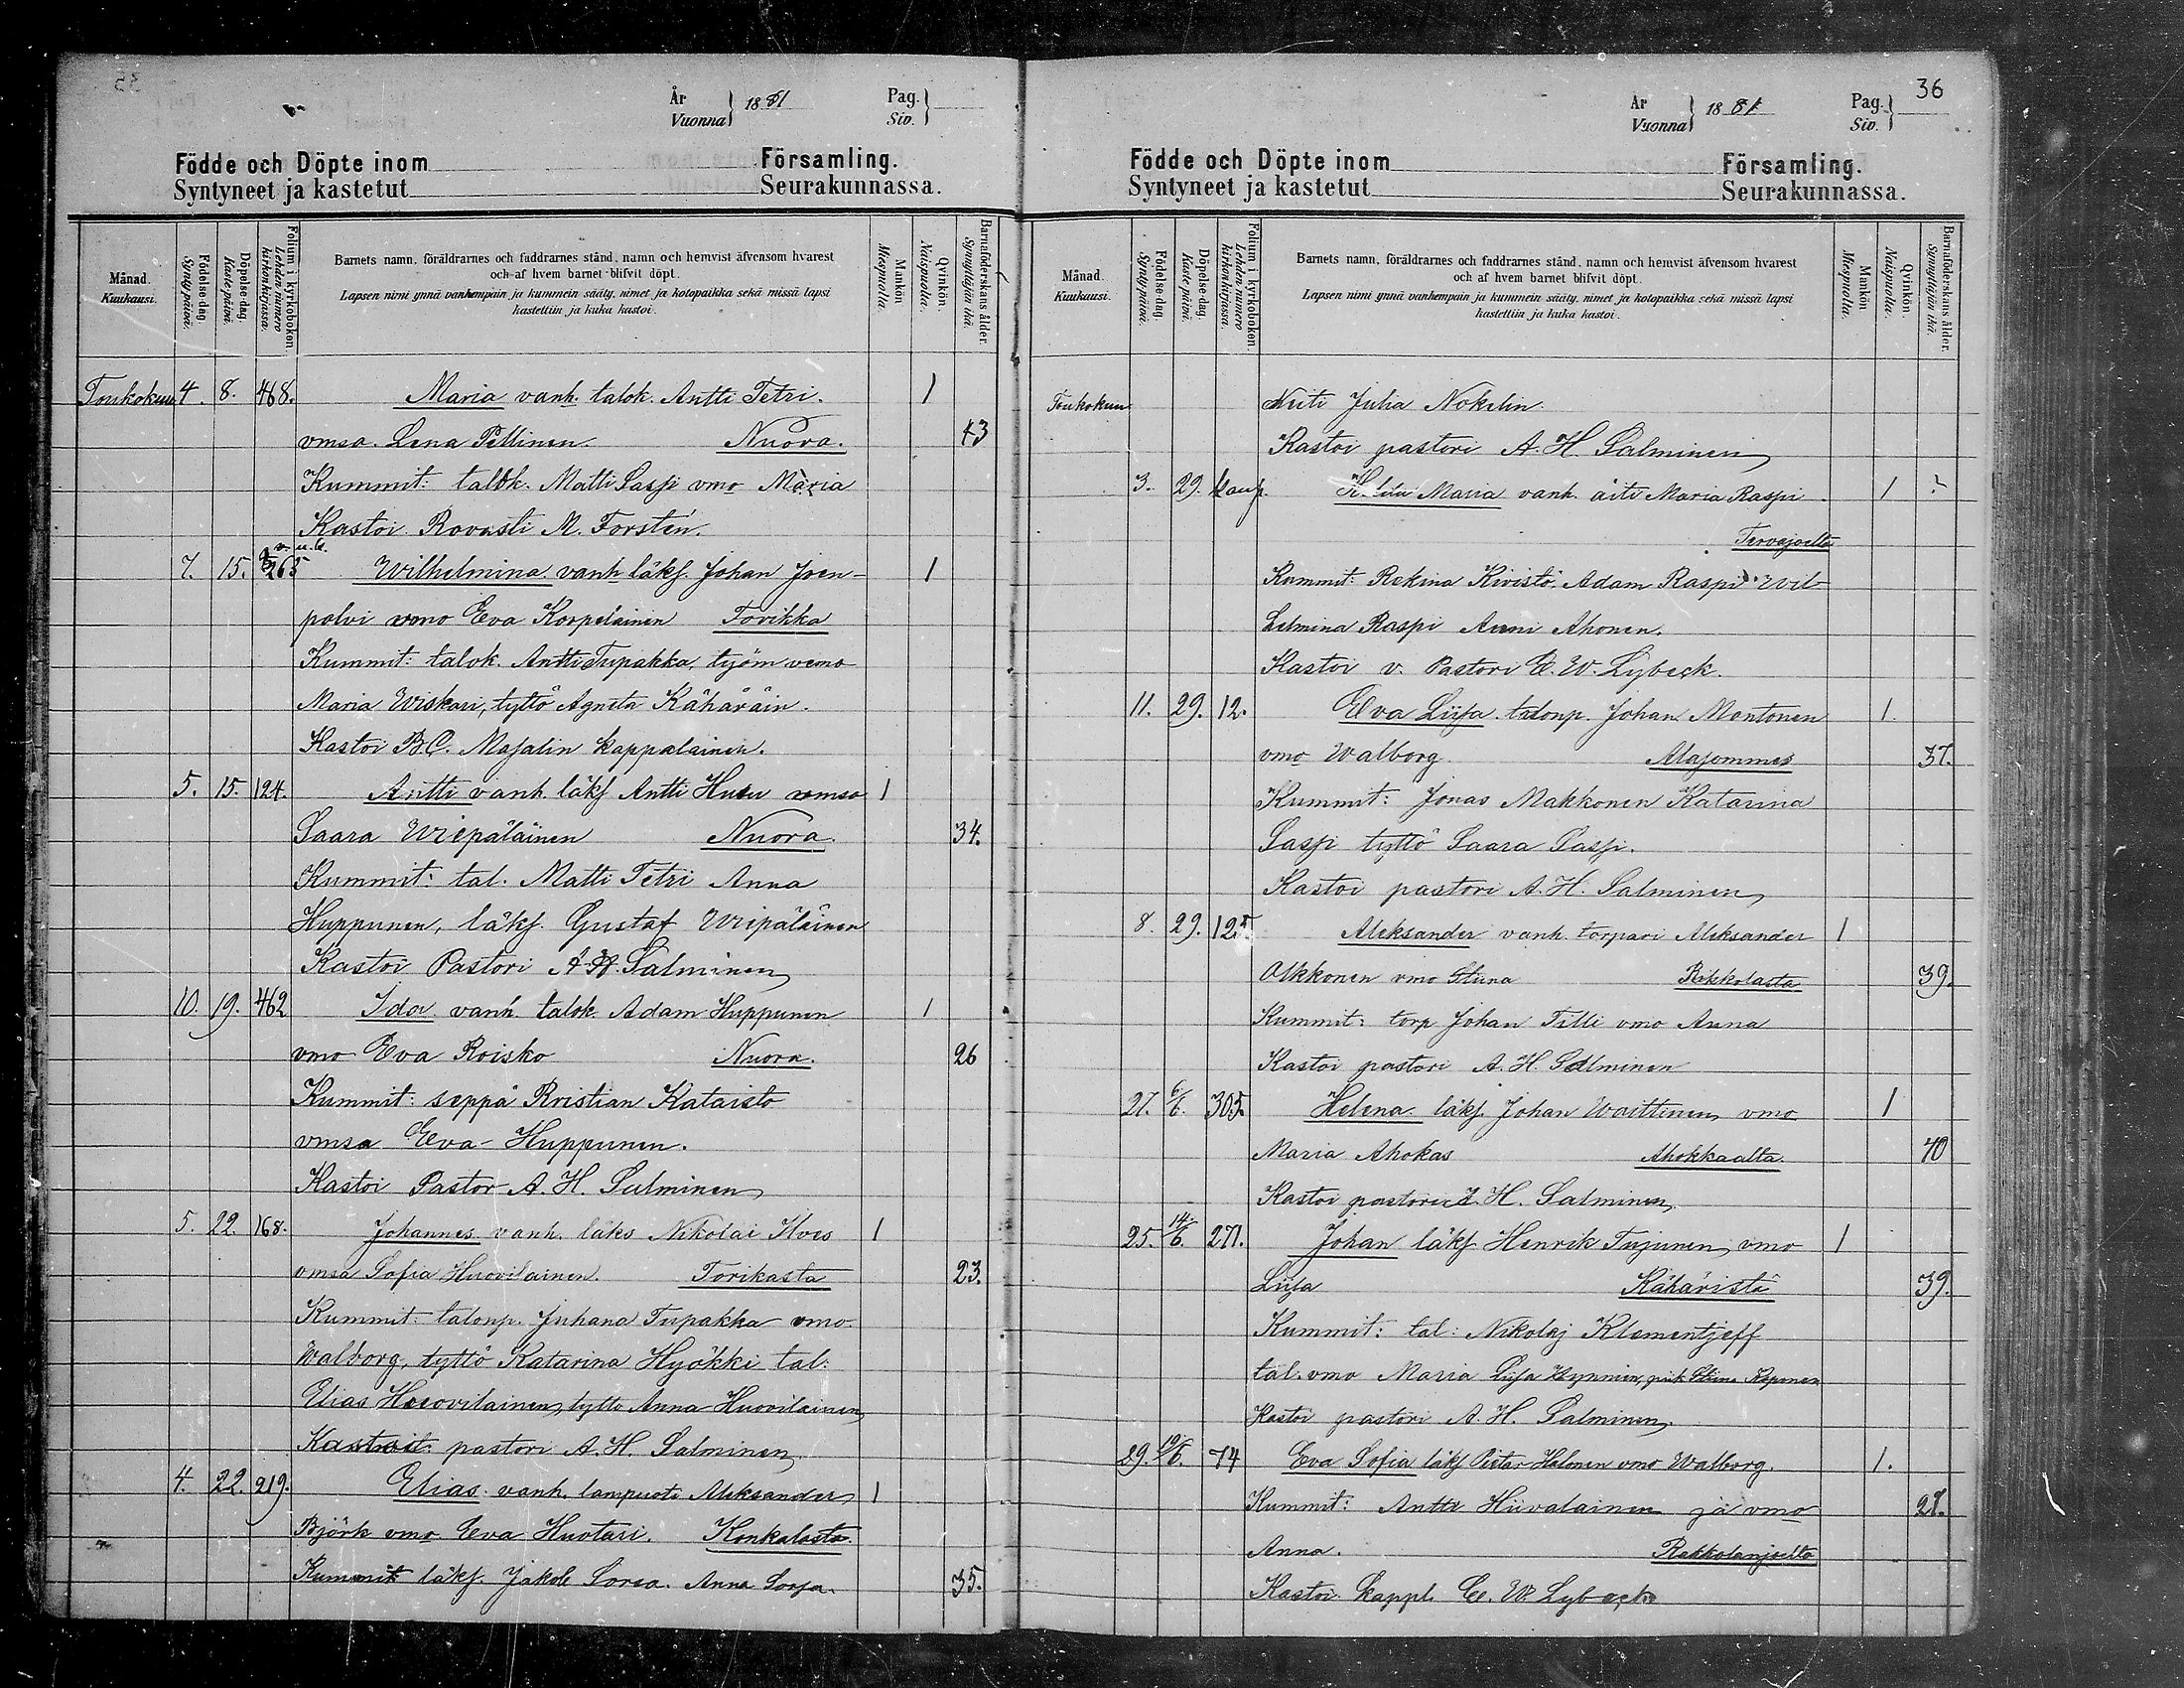 År
Vuonna } 1881 Pag.
Siv. }
Födde och Döpte inom Församling.
Syntyneet ja kastetut Seurakunnassa.
Månad.
Kuukausi.
Födelse-dag.
Synty päivä.
Döpelse-dag.
Kaste päivä.
Folium i kyrkoboken.
Lehden numero kirkonkirjassa.
Barnets namn, föräldrarnes och faddrarnes stånd, namn och hemvist äfvensom hvarest
och af hvem barnet blifvit döpt.
Lapsen nimi ynnä vanhempain ja kummein sääty, nimet ja kotopaikka sekä missä lapsi
kastettiin ja kuka kastoi.
Mankön
Miespuolta.
Qvinkön.
Naispuolta.
Barnaföderskans ålder.
Synnyttäjän ikä.
Toukokuu 4. 8. 468. Maria vanh. talok. Antti Tetri. 1
vmsa. Lena Pellinen. Nuora. 43
Kummit: talok. Matti Saspi vmo Maria
Kastoi Rovasti M. Forstén.
7. 15. 265 Wilhelmina vanh läksf. Johan Joen- 1
polvi vmo Eva Korpelainen Torikka
Kummit: talok. Antti Tupakka, työm vemo
Maria Wiskari, tyttö Agneta Kähäräin.
Kastoi B.C. Majalin kappalainen.
5. 15. 124. Antti vanh. läksf Antti Husu vmsa 1
Saara Wiepäläinen Nuora. 34.
Kummit: tal. Matti Tetri Anna
Huppunen, läksf. Gustaf Wiipäläinen
Kastoi Pastori A. H. Salminen
10. 19. 462 Ida vanh. talok. Adam Huppunen 1
vmo Eva Roisko Nuora. 26
Kummit: seppä Kristian Kataisto
vmsa Eva Huppunen.
Kastoi Pastor A. H. Salminen
5. 22. 168. Johannes vanh. läks Nikolai 1
vmsa Sofia Huovilainen. Torikasta 23.
Kummit: talonp. Juhana Tupakka vmo
Walborg, tyttö Katarina Hyökki tal:
Elias Huovilainen, tytto Anna Huovilainen
pastori A. H. Salminen
4. 22. 219. Elias vanh. lampuoti Aleksander 1
Björk vmo Eva Huotari. Konkalasta.
Kummit läksf. Jakob Sorsa. Anna Sorsa. 35.
36
År
Vuonna } 1881 Pag.
Siv. }
Födde och Döpte inom Församling.
Syntyneet ja kastetut Seurakunnassa.
Månad.
Kuukausi.
Födelse-dag.
Synty päivä.
Döpelse-dag.
Kaste päivä.
Folium i kyrkoboken.
Lehden numero kirkonkirjassa.
Barnets namn, föräldrarnes och faddrarnes stånd, namn och hemvist äfvensom hvarest
och af hvem barnet blifvit döpt.
Lapsen nimi ynnä vanhempain ja kummein sääty, nimet ja kotopaikka sekä missä lapsi
kastettiin ja kuka kastoi.
Mankön
Miespuolta.
Qvinkön.
Naispuolta.
Barnaföderskans ålder.
Synnyttäjän ikä.
Toukokuu Neiti Julia Nokelin.
Kastoi pastori A. H. Salminen
3. 29. kaup. Maria vanh. äiti Maria Raspi 1 ?
Tervajoelta
Kummit: Rekina Kivistö, Adam Raspi Wil-
helmina Raspi Anni Ahonen.
Kastoi v. Pastori E. W. Lybeck.
11. 29. 12. Eva Liisa talonp. Johan Montonen 1.
vmo Walborg Alasommes 37.
Kummit: Jonas Makkonen Katarina
Saspi tyttö Saara Saspi.
Kastoi pastori A. H. Salminen
8. 29. 125. Aleksander vanh. torpari Aleksander 1
Olkkonen vmo Stiina Rikkolasta 39.
Kummit: torp Johan Tilli vmo Anna
Kastoi pastori A. H. Salminen
27. 6/6. 305. Helena läksf. Johan Waittinen vmo 1
Maria Ahokas Ahokkaalta. 40
Kastoi pastori A. H. Salminen
25. 14/6. 271. Johan läksf Henrik Tujunen vmo 1
Liisa Kähäristä 39.
Kummit: tal: Nikolaj Klementjeff
tal. vmo Maria Liisa Hynninen, piik. Stiina
Kastoi pastori A. H. Salminen.
29. 19/6. 74 Eva Sofia läksf Pietar Halonen vmo Walborg. 1.
Kummit: Antti Hiivalainen ja vmo 27.
Anna. Rakkolanjoelta
Kastoi kappl. E. W. Lybeck